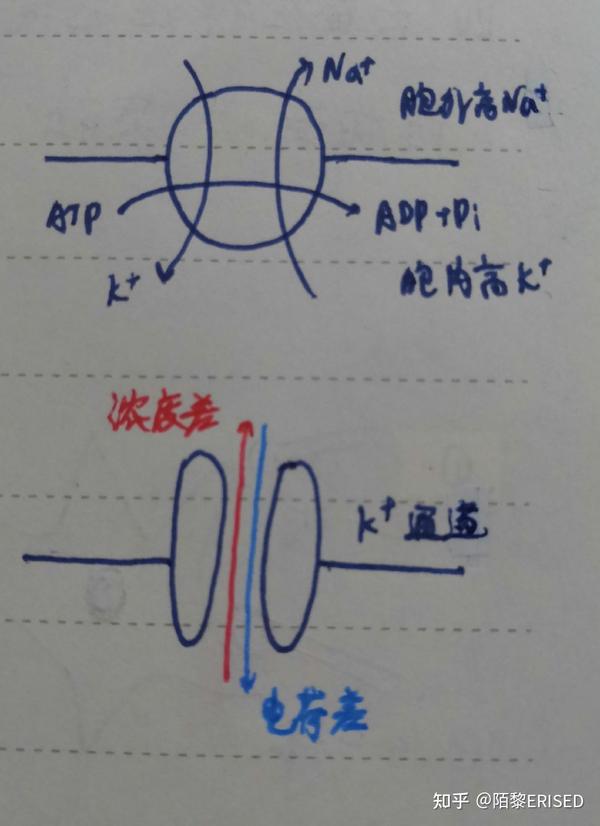 Na+
胞外高Na+
ATP
ADP+Pi
K+
胞内高K+
浓度差
K+通道
电荷差
知乎 @陌黎ERISED